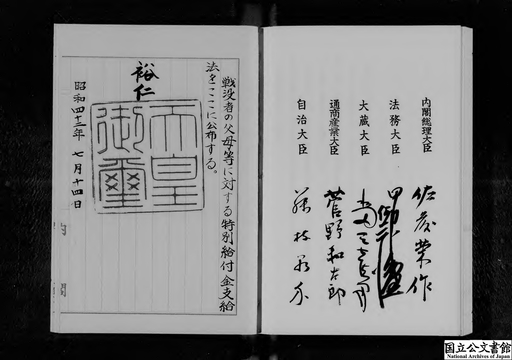 内閣総理大臣 佐藤榮作
法務大臣
大蔵大臣
通商産業大臣 菅野和太郎
自治大臣 藤枝泉介
戦没者の父母等に対する特別給付金支給
法をここに公布する。
裕仁
天皇
御璽
昭和四十二年 七月十四日
内閣
国立公文書館
National Archives of Japan